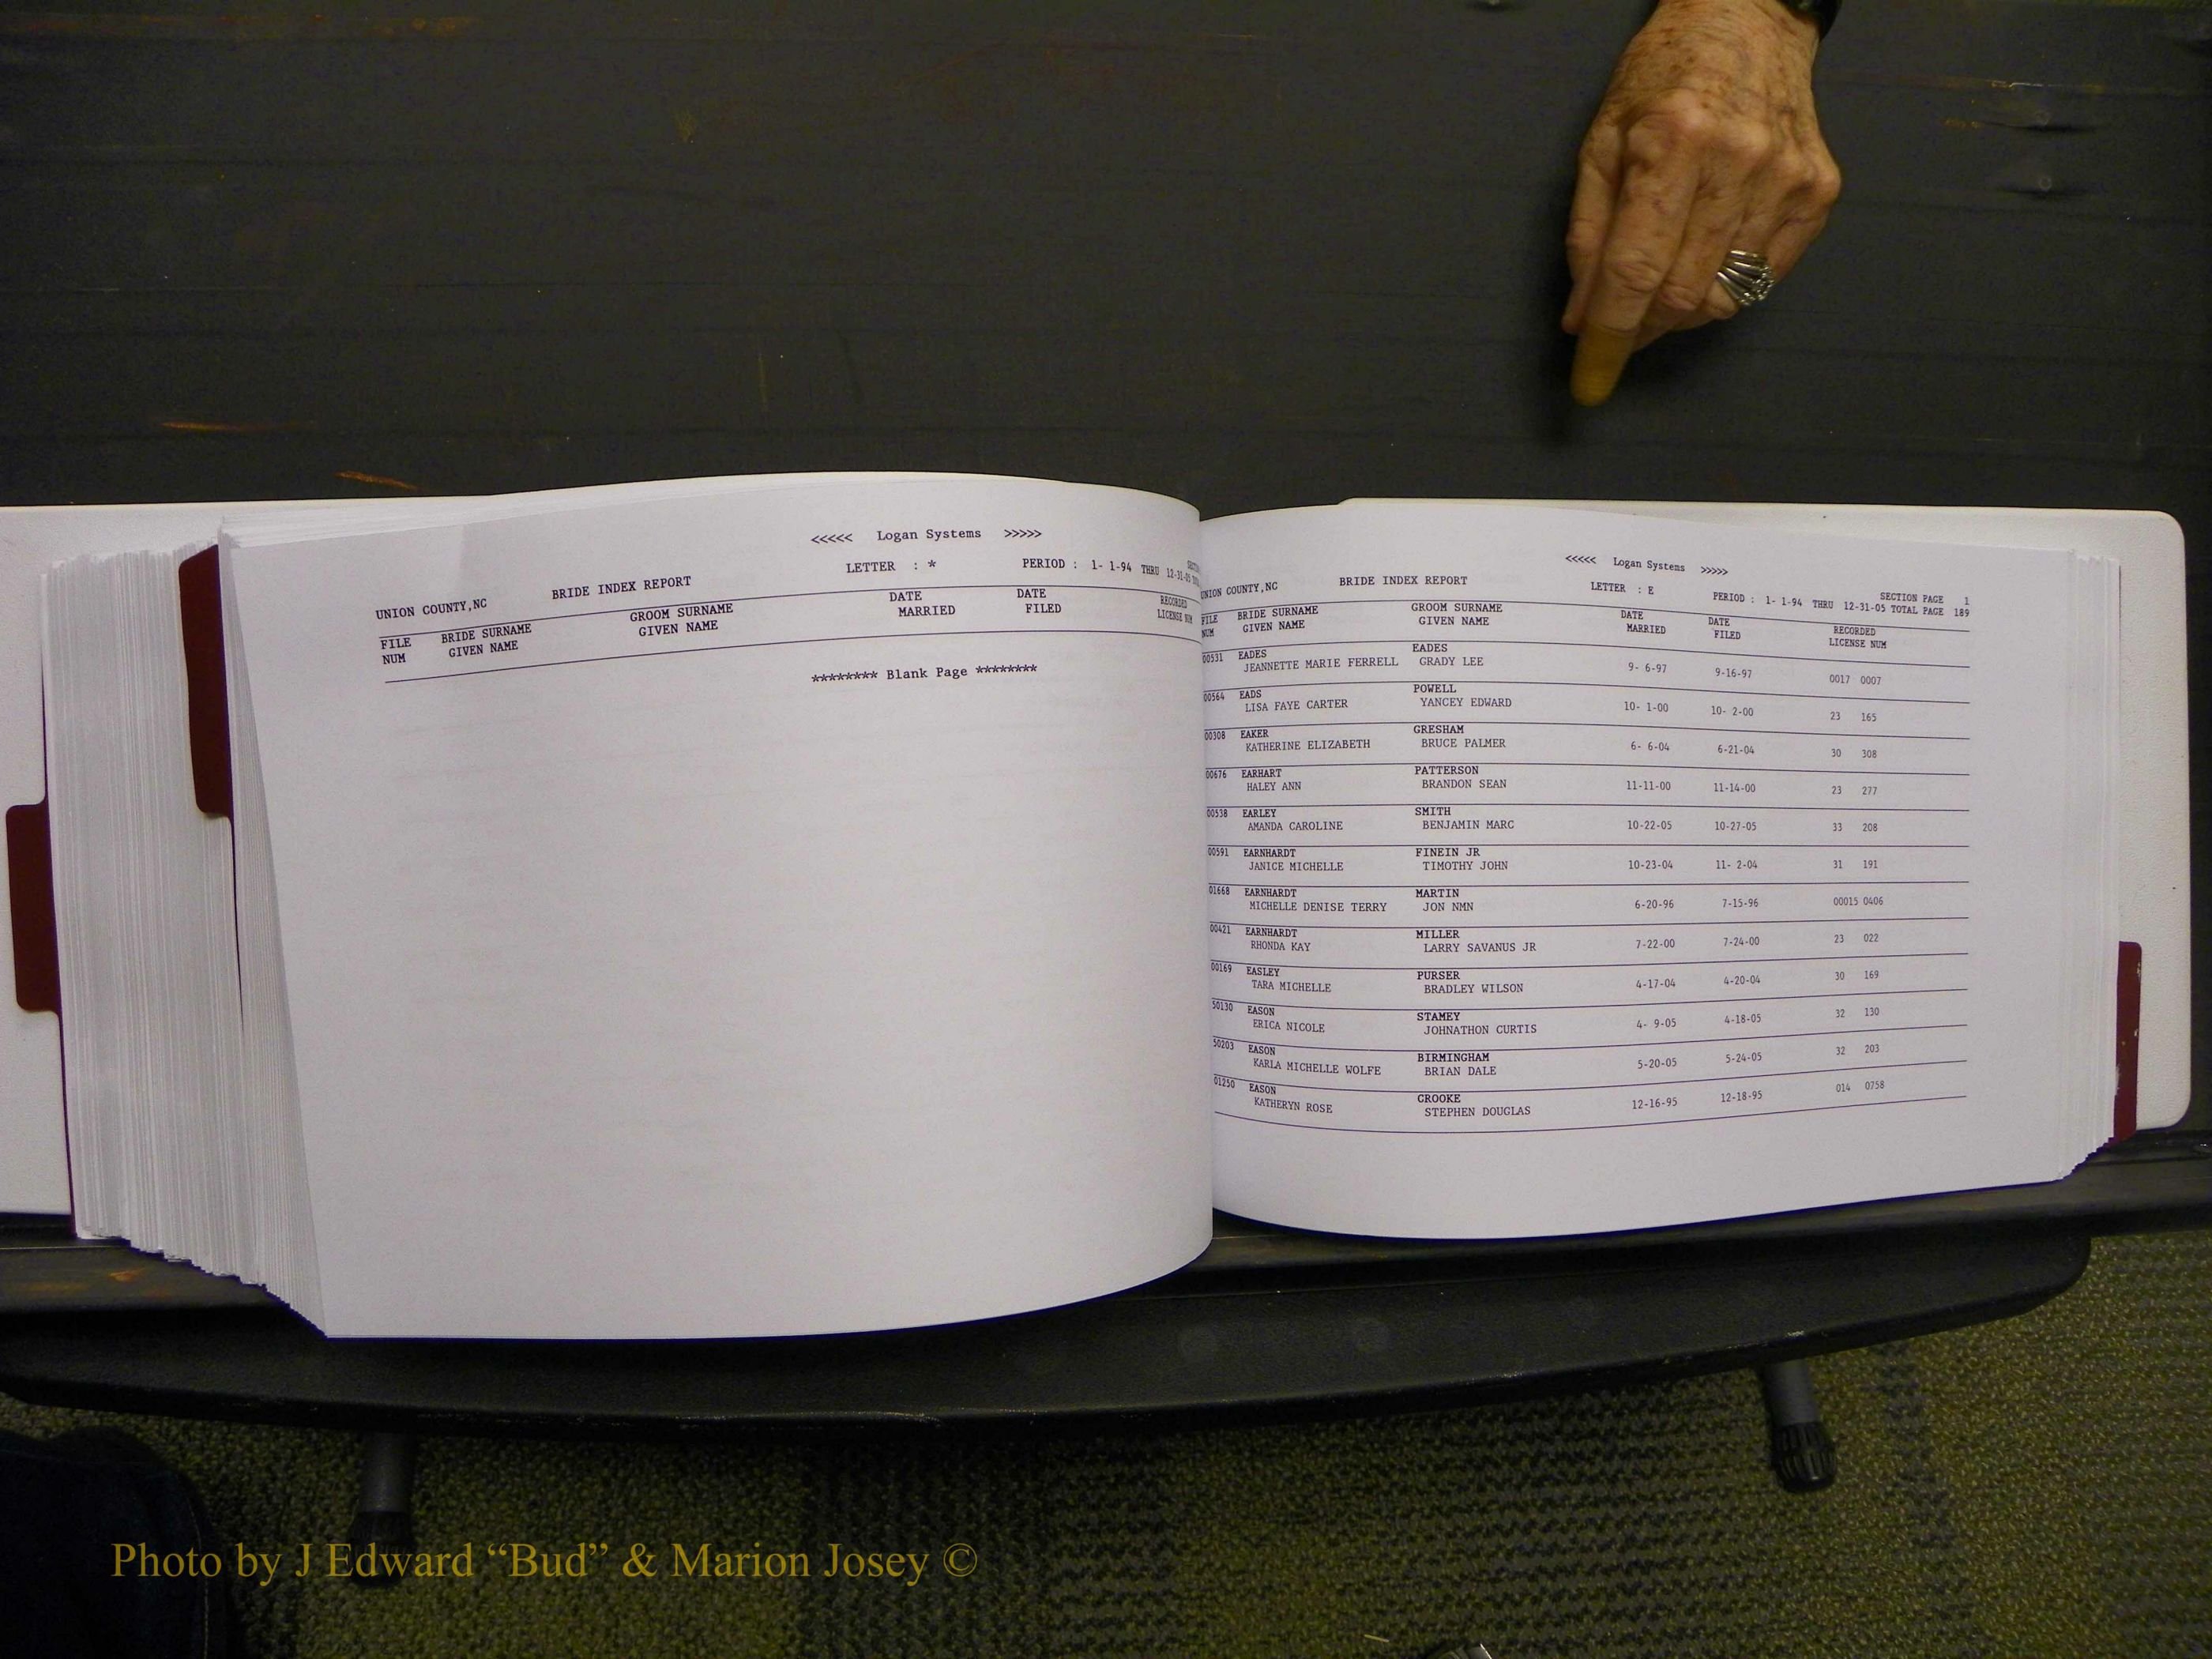 <<<<< Logan Systems >>>>>
UNION COUNTY,NC BRIDE INDEX REPORT LETTER : * PERIOD : 1- 1-94 THRU 12-31-05
FILE BRIDE SURNAME GROOM SURNAME DATE DATE RECORDED
NUM GIVEN NAME GIVEN NAME MARRIED FILED LICENSE NUM
******** Blank Page ********
<<<<< Logan Systems >>>>>
UNION COUNTY,NC BRIDE INDEX REPORT LETTER : E SECTION PAGE 1
PERIOD : 1- 1-94 THRU 12-31-05 TOTAL PAGE 189
FILE BRIDE SURNAME GROOM SURNAME DATE DATE RECORDED
NUM GIVEN NAME GIVEN NAME MARRIED FILED LICENSE NUM
00531 EADES EADES
JEANNETTE MARIE FERRELL GRADY LEE 9- 6-97 9-16-97 0017 0007
00564 EADS POWELL
LISA FAYE CARTER YANCEY EDWARD 10- 1-00 10- 2-00 23 165
00308 EAKER GRESHAM
KATHERINE ELIZABETH BRUCE PALMER 6- 6-04 6-21-04 30 308
00676 EARHART PATTERSON
HALEY ANN BRANDON SEAN 11-11-00 11-14-00 23 277
00538 EARLEY SMITH
AMANDA CAROLINE BENJAMIN MARC 10-22-05 10-27-05 33 208
00591 EARNHARDT FINEIN JR
JANICE MICHELLE TIMOTHY JOHN 10-23-04 11- 2-04 31 191
01668 EARNHARDT MARTIN
MICHELLE DENISE TERRY JON NMN 6-20-96 7-15-96 00015 0406
00421 EARNHARDT MILLER
RHONDA KAY LARRY SAVANUS JR 7-22-00 7-24-00 23 022
00169 EASLEY PURSER
TARA MICHELLE BRADLEY WILSON 4-17-04 4-20-04 30 169
50130 EASON STAMEY
ERICA NICOLE JOHNATHON CURTIS 4- 9-05 4-18-05 32 130
50203 EASON BIRMINGHAM
KARLA MICHELLE WOLFE BRIAN DALE 5-20-05 5-24-05 32 203
01250 EASON CROOKE
KATHERYN ROSE STEPHEN DOUGLAS 12-16-95 12-18-95 014 0758
Photo by J Edward “Bud” & Marion Josey ©